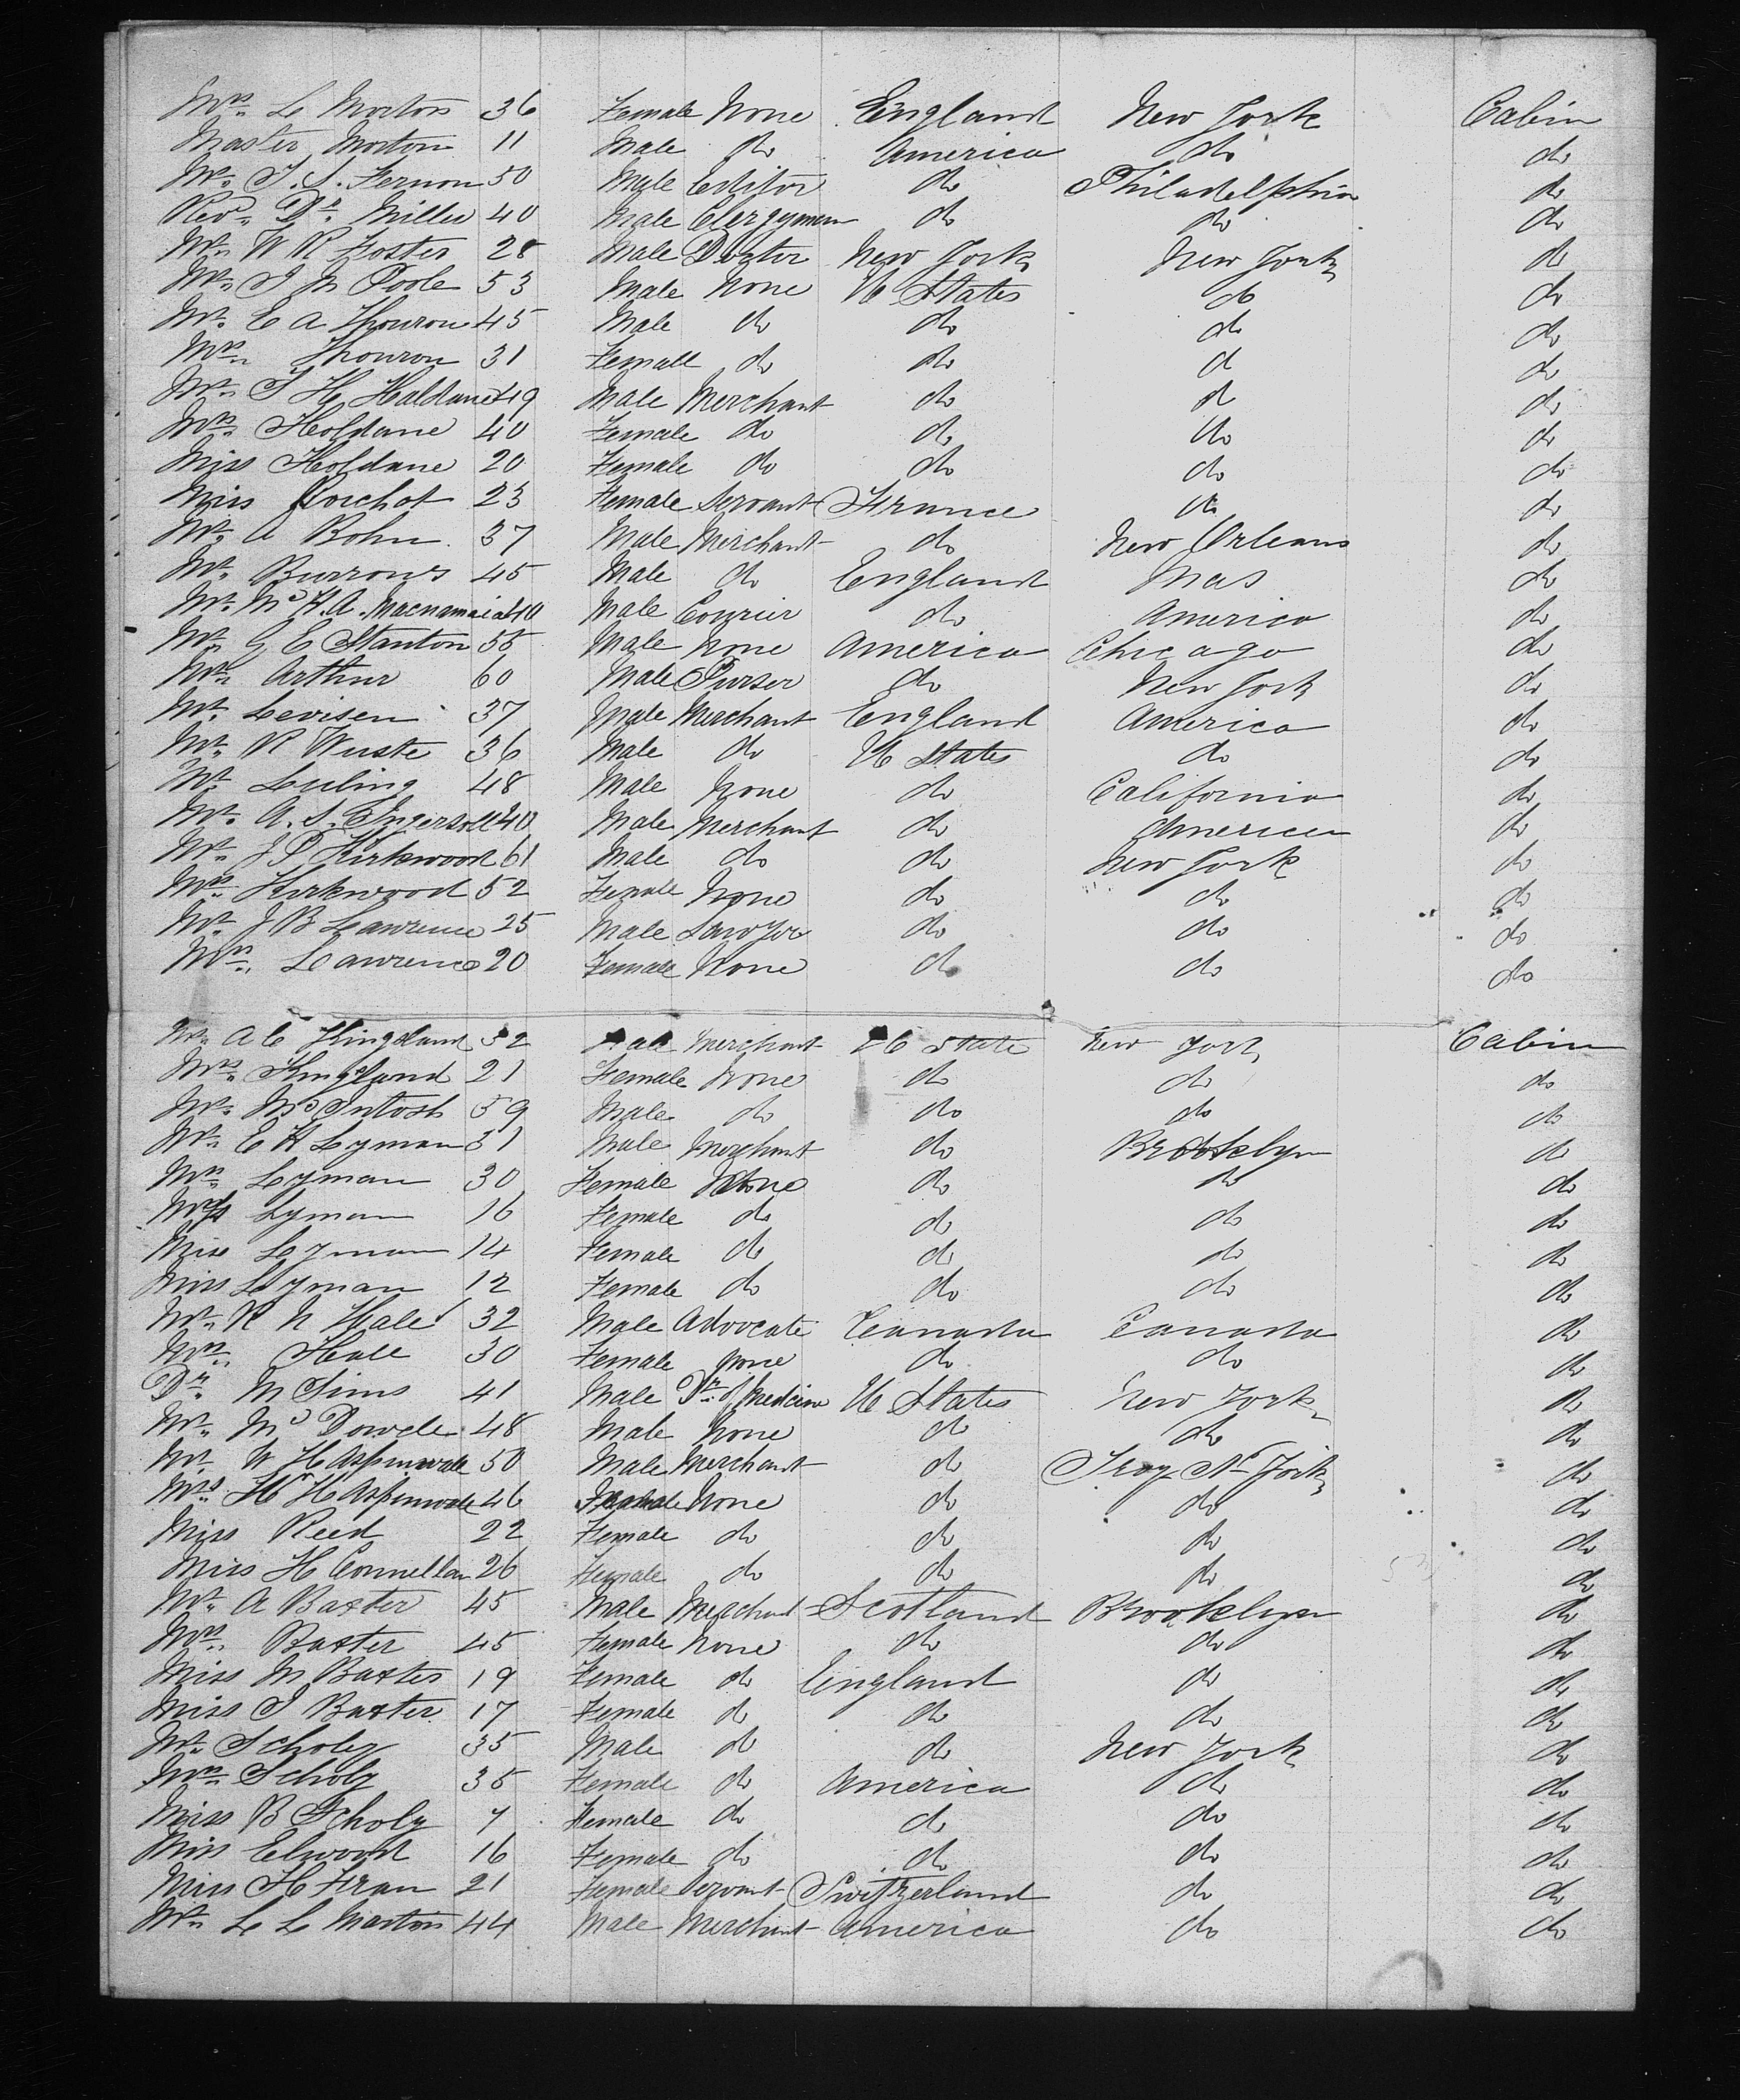 Mrs. L Morton 36 Female None England New York Cabin
Master Morton 11 Male do America do do
Mr. T. S. Fernon 50 Male Editor do Philadelphia do
Revd. Dr Miller 40 Male Clergyman do do do
Mr. W R Foster 28 Male Doctor New York New York do
Mr. I M Poole 53 Male None U States do do
Mr. E A Thouron 45 Male do do do do
Mrs. Thouron 31 Female do do do do
Mr. T H Haldane 49 Male Merchant do do do
Mrs. Holdane 40 Female do do do do
Miss Holdane 20 Female do do do do
Miss 23 Female Servant France do do
Mr. A Bohn 37 Male Merchant do New Orleans do
Mr. Burrows 45 Male do England Mas do
Mr. Mc H. A. Macnamaia 40 Male Courier do America do
Mr. G E Stanton 55 Male None America Chicago do
Mr. Arthur 60 Male Purser do New York do
Mr. Levisen 37 Male Merchant England America do
Mr. R Wuste 36 Male do U States do do
Mr. Luling 48 Male None do California do
Mr. A. S. Ingersoll 40 Male Merchant do America do
Mr. J P Kirkwood 61 Male do do New York do
Mrs. Kirkwood 52 Female None do do do
Mr. J B Lawrence 25 Male Lawyer do do do
Mrs. Lawrence 20 Female None do do do
Mr. A C Kingsland 52 Male Merchant U State New York Cabin
Mrs. Kingland 21 Female None do do do
Mr. Mc Intosh 59 Male do do do do
Mr. E H Lyman 31 Male Merchant do Brooklyn do
Mrs. Lyman 30 Female None do do do
Miss Lyman 16 Female do do do do
Miss Lyman 14 Female do do do do
Miss Lyman 12 Female do do do do
Mr. R N Hale 32 Male Advocate Canada Canada do
Mrs. Hall 30 Female None do do do
Dr. M Sims 41 Male Dr. of Medicine U States New York do
Mr. Mc Dowele 48 Male None do do do
Mr. W H Aspinwale 50 Male Merchant do Troy N York do
Mrs. W H Aspinwale 46 Female None do do do
Miss Reed 22 Female do do do do
Miss H Connellan 26 Female do do do do
Mr. A Baxter 45 Male Merchant Scotland Brooklyn do
Mrs. Baxter 45 Female None do do do
Miss M Baxter 19 Female do England do do
Miss I Baxter 17 Female do do do do
Mr. Scholy 35 Male do do New York do
Mrs. Scholy 35 Female do America do do
Miss B Scholy 7 Female do do do do
Miss Elwood 16 Female do do do do
Miss H Fran 21 Female Servant Switzerland do do
Mr. L L Morton 44 Male Merchant America do do